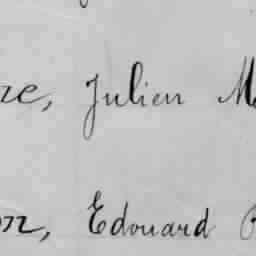 ne, Julien M
on, Edouard